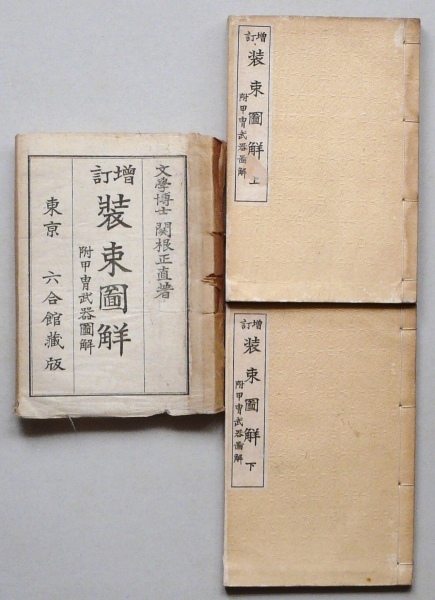 増訂
装束圖解
附甲冑武器圖解
文學博士 関根正直著
東京 六合館藏版
増訂
装束圖解 上
附甲冑武器圖解
増訂
装束圖解 下
附甲冑武器圖解